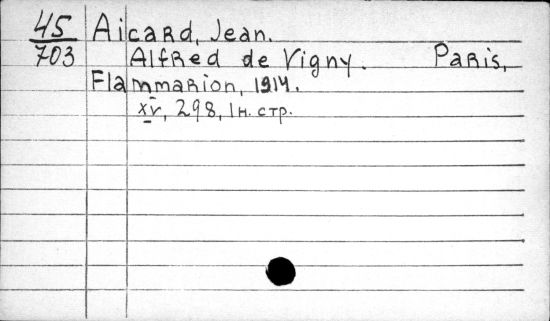 45 Aicard, Jean.
703 Alfred de Vigny. Paris,
Flammarion, 1914.
xv, 298, 1 н. стр.